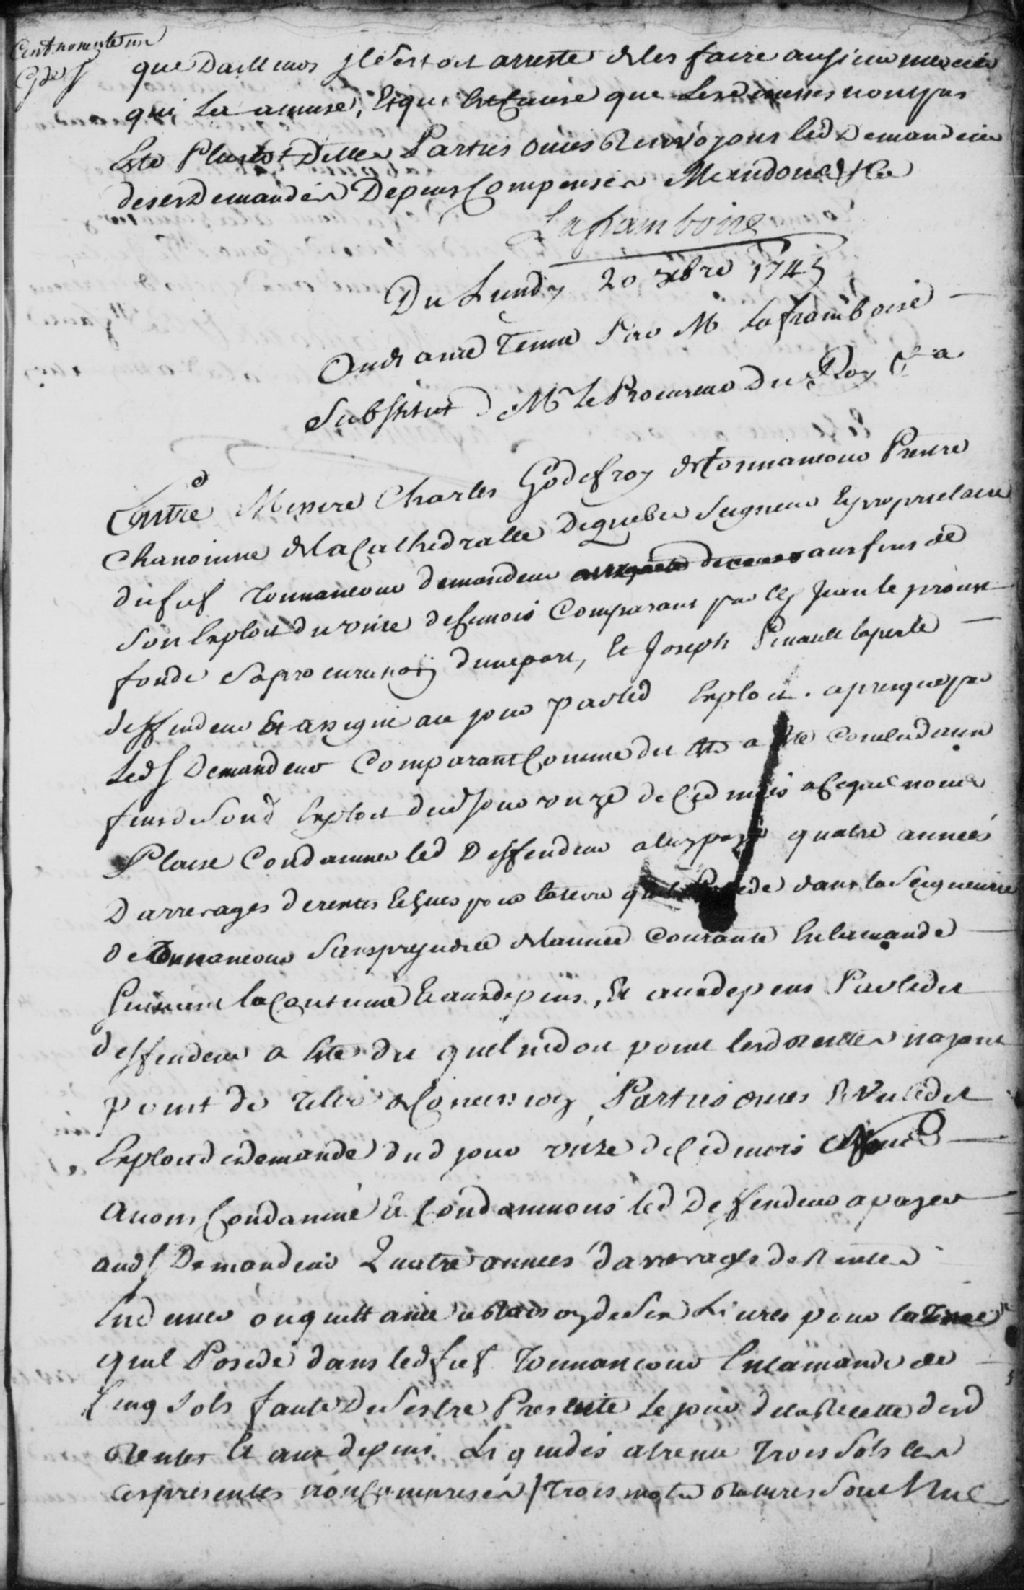 Cent nonente un
que Dailleurs il sest arreste de les faire
qui la amusé, que les
este Plustost Parties ouies Renvoyons led Demandeur
de ses Demandes Depens Compensés Mandons &ca
Laframboise
Du Lundy 20 xbre 1745
Audiance Tenue Par Mr Laframboise
Substitut de Mr le Procureur du Roy &ca
Entre Messire Charles Godefroy de Tonnancour Prestre
Chanoinne de la Cathedralle De quebec Seigneur & proprietaire
du fief Tonnancour demandeur aux fins de
Son Exploit du onze de ce mois Comparant par Jean le proust
fondé de procuration dune part, Et Joseph Pinault laperle
deffendeur Et assigné au jour par led Exploit. apresque par
Led Sr Demandeur Comparant Comme dit est a esté Conclud aux
fins de Sond Exploit dud Jour onze de Ced mois a Ce quil nous
Plaise Condamner led Deffendeur a luy payer quatre années
Darrerages de rentes pour la terre quil Possede dans la Seigneurie
de Tonnancour Sans prejudice de lannée Courante En lamande
Suivant la Coutume Et aux depens, Et aux depens Par ledit
deffendeur a Esté dit quil ne doit point lesd Rentes nayant
point de titre de Concession, Parties ouies & Vu ledit
Exploit de demande dud jour onze de Ced mois
Avons Condamné Et Condamnons led Deffendeur a payer
aud Sr Demandeur Quatre années darrerages de Rentes
En deniers ou quittance a Raison de Six Livres pour la Terre
quil Posede dans led fief Tonnancour En lamande de
Cinq Sols faute De Sestre Presenté Le jour de la Recette desd
Rentes Et aux depens Liquidés a trente Trois Sols
ces presentes non Comprises / Trois mots Ratures Sont Nuls